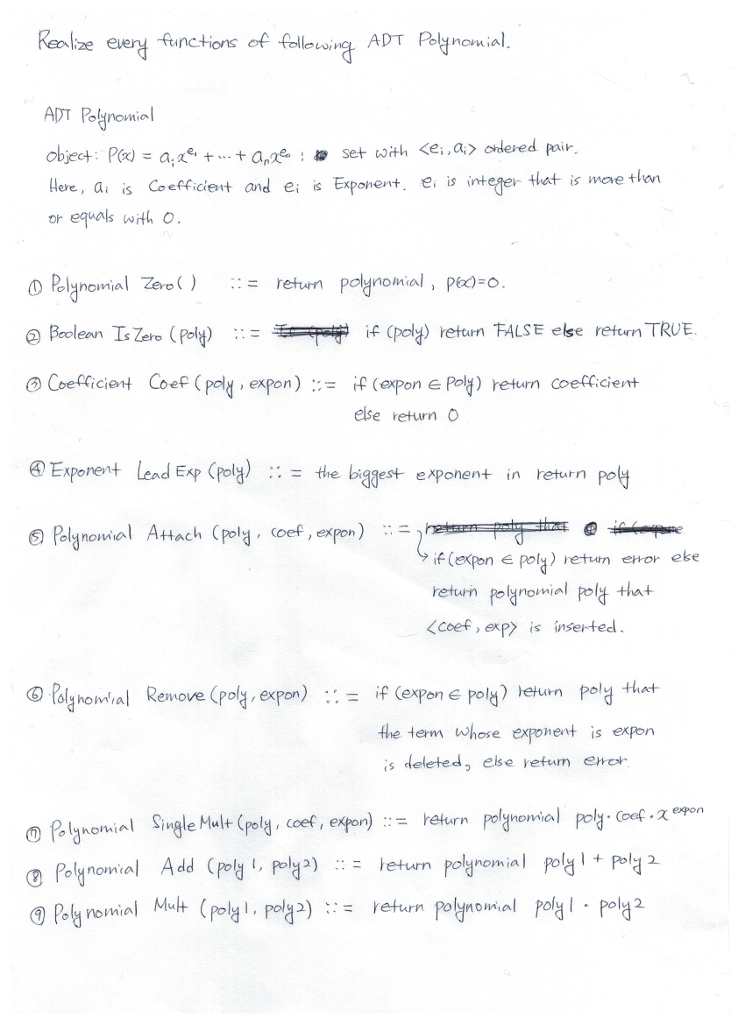 Realize every functions of following ADT Polynomial.
ADT Polynomial
object: P(x) = a₁x^e₁ + ... + aₙx^e₀ : set with <eᵢ, aᵢ> ordered pair.
Here, aᵢ is Coefficient and eᵢ is Exponent. eᵢ is integer that is more than
or equals with 0.
① Polynomial Zero( ) ::= return polynomial, p(x)=0.
② Boolean IsZero (poly) ::= if (poly) return FALSE else return TRUE.
③ Coefficient Coef (poly, expon) ::= if (expon ∈ Poly) return coefficient
else return 0
④ Exponent Lead Exp (poly) ::= the biggest exponent in return poly
⑤ Polynomial Attach (poly, coef, expon) ::= return poly that
if (expon ∈ poly) return error else
return polynomial poly that
<coef, exp> is inserted.
⑥ Polynomial Remove (poly, expon) ::= if (expon ∈ poly) return poly that
the term whose exponent is expon
is deleted, else return error.
⑦ Polynomial SingleMult (poly, coef, expon) ::= return polynomial poly · coef · x^expon
⑧ Polynomial Add (poly1, poly2) ::= return polynomial poly1 + poly2
⑨ Polynomial Mult (poly1, poly2) ::= return polynomial poly1 · poly2